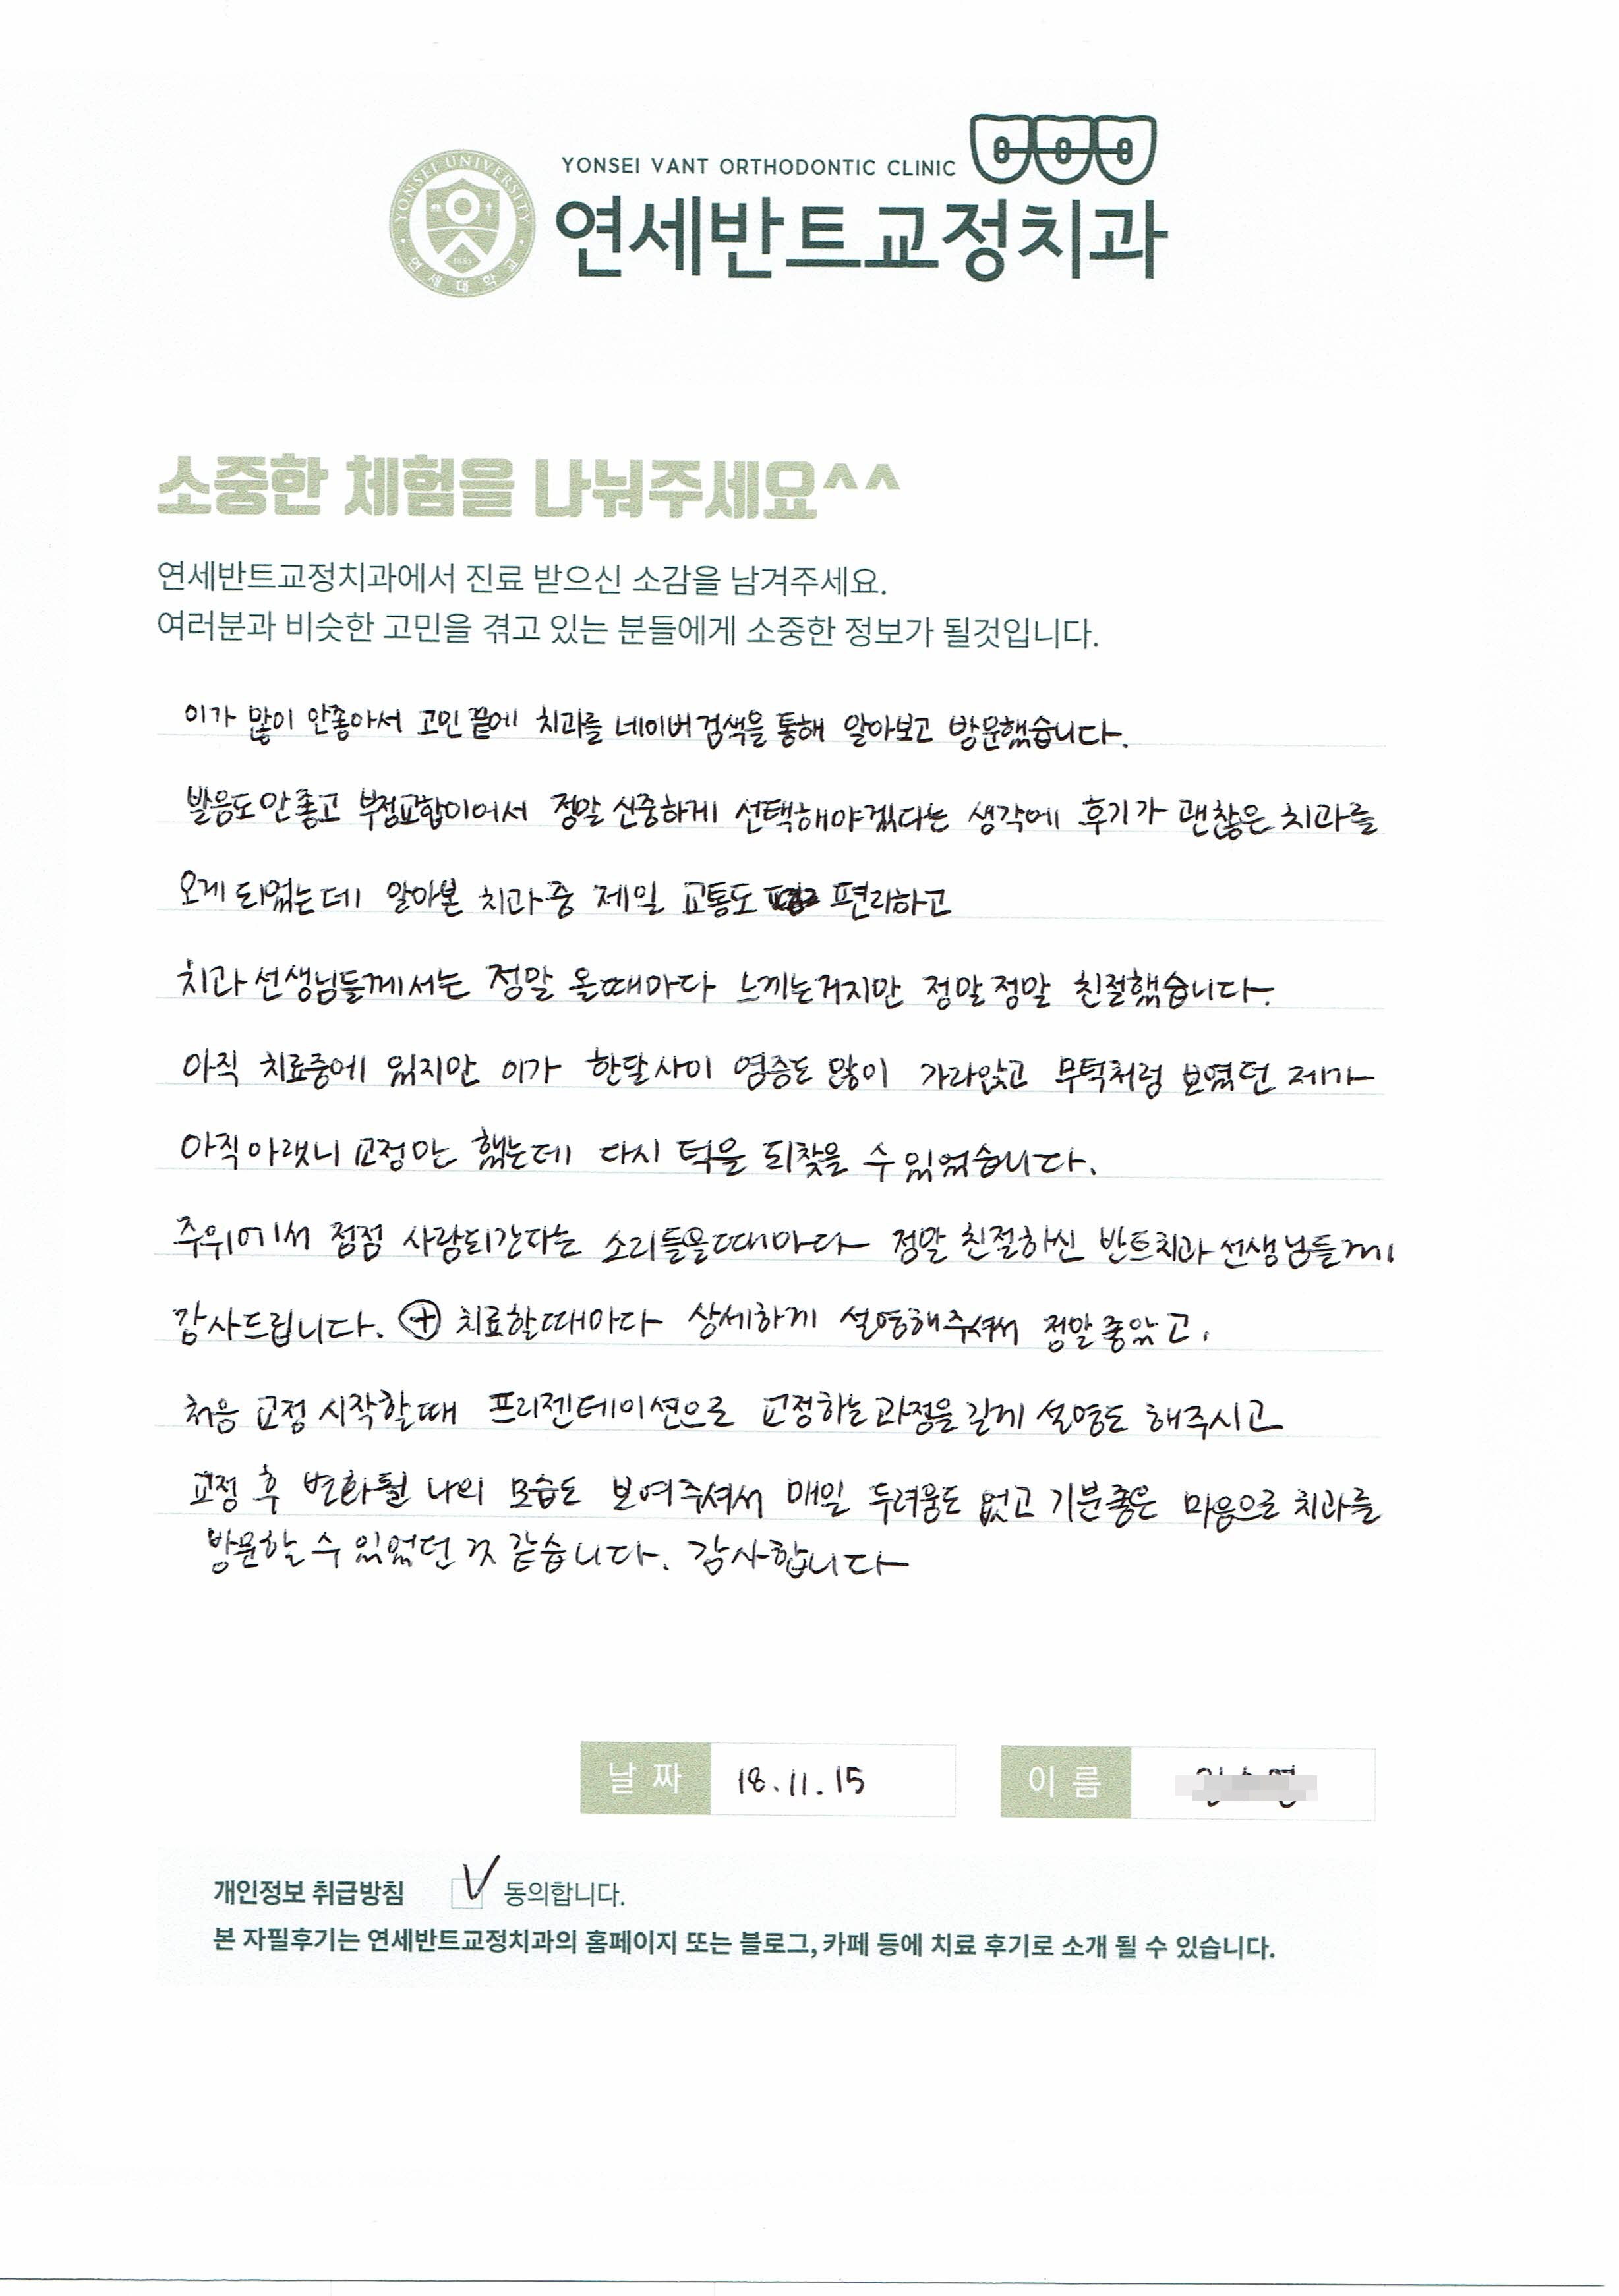 YONSEI UNIVERSITY
1885
연세대학교
YONSEI VANT ORTHODONTIC CLINIC
연세반트교정치과
소중한 체험을 나눠주세요^^
연세반트교정치과에서 진료 받으신 소감을 남겨주세요.
여러분과 비슷한 고민을 겪고 있는 분들에게 소중한 정보가 될것입니다.
이가 많이 안좋아서 고민 끝에 치과를 네이버 검색을 통해 알아보고 방문했습니다.
발음도 안좋고 부정교합이어서 정말 신중하게 선택해야겠다는 생각에 후기가 괜찮은 치과를
오게 되었는데 알아본 치과 중 제일 교통도 편리하고
치과 선생님들께서는 정말 올때마다 느끼는거지만 정말 정말 친절했습니다.
아직 치료중에 있지만 이가 한달사이 염증도 많이 가라앉고 무턱처럼 보였던 제가
아직 아랫니 교정만 했는데 다시 턱을 되찾을 수 있었습니다.
주위에서 점점 사람되간다는 소리들을때마다 정말 친절하신 반트치과 선생님들께
감사드립니다. ⊕ 치료할때마다 상세하게 설명해주셔서 정말 좋았고,
처음 교정 시작할때 프리젠테이션으로 교정하는 과정을 길게 설명도 해주시고
교정 후 변화될 나의 모습도 보여주셔서 매일 두려움도 없고 기분좋은 마음으로 치과를
방문할 수 있었던 것 같습니다. 감사합니다
날짜 18.11.15
이름
개인정보 취급방침 V 동의합니다.
본 자필후기는 연세반트교정치과의 홈페이지 또는 블로그, 카페 등에 치료 후기로 소개 될 수 있습니다.